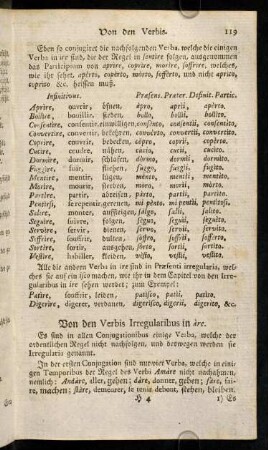 Von den Verbis. 119
Eben so conjugiret die nachfolgenden Verba, welche die einigen
Verba in ire sind, die der Regel in sentire folgen, ausgenommen
das Participium von aprire, coprire, morire, soffrire, welches,
wie ihr sehet, apèrto, copèrto, mòrto, soffèrto, und nicht aprito,
coprito &c. heissen muß.
Infinitivus. Præsens. Præter. Definit. Partic.
Aprire, ouvrir, öfnen, àpro, aprii, apèrto.
Bollire, bouillir, sieden, bollo, bollii, bollito.
convertir, bekehren, convèrto, convertii, convertito.
Coprire, couvrir, decken, còpro, coprii, copèrto.
Cucire, coudre, nähen, cucio, cucii, cucito.
Dormire, dormir, schlafen, dòrmo, dormii, dormito.
Fuggire, fuir, fliehen, fuggo, fuggii, fuggito.
Mentire, mentir, lügen, mento, mentii, mentito.
Morire, mourir, sterben, mòro, morii, mòrto.
Partire, partir, verreisen, parto, partii, partito.
Pentirsi, se repentir, gereuen, mi pènto, mi pentii, pentitosi.
Salire, monter, aufsteigen, salgo, salii, salito.
Seguire, suivre, folgen, sèguo, seguii, seguito.
Servire, servir, dienen, sèrvo, servii, servito.
Soffrire, souffrir, dulten, sòffro, soffrii, soffèrto.
Sortire, sortir, ausgehen, sòrto, sortii, sortito.
Vestire, habiller, kleiden, vèsto, vestii, vestito.
Alle die andern Verba in ire sind in Præsenti irregularia, welches
sie auf isco machen, wie ihr in dem Capitel von den Irregularibus
in ire sehen werdet; zum Exempel:
Patire, souffrir, leiden, patisco, patii, patito.
Digerire, digerer, verdauen, digerisco, digerii, digerito, &c.
Von den Verbis Irregularibus in àre.
Es sind in allen Conjugationibus einige Verba, welche der
ordentlichen Regel nicht nachfolgen, und deswegen werden sie
Irregularia genannt.
In der ersten Conjugation sind nur vier Verba, welche in einigen
Temporibus der Regel des Verbi Amàre nicht nachahmen,
nemlich: Andàre, aller, gehen; dàre, donner, geben; fàre, faire,
machen; stàre, demeurer, se tenir debout, stehen, bleiben.
H 4 1) Es